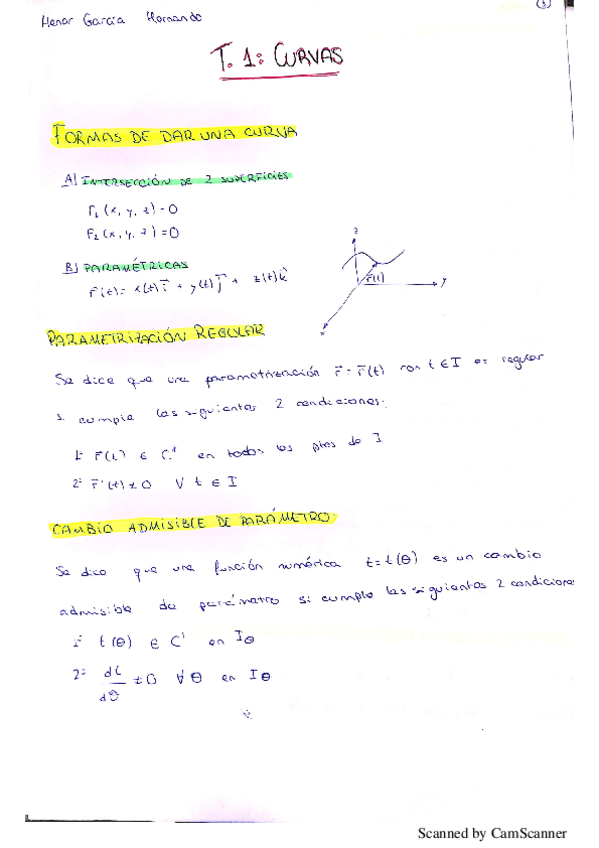 (1)
Henar García Hernando
T. 1: CURVAS
FORMAS DE DAR UNA CURVA
A) INTERSECCIÓN DE 2 SUPERFICIES
F₁ (x, y, z) = 0
F₂ (x, y, z) = 0
B) PARAMÉTRICAS
r⃗(t) = x(t) i⃗ + y(t) j⃗ + z(t) k⃗
z
r⃗(t)
y
x
PARAMETRIZACIÓN REGULAR
Se dice que una parametrización r⃗ = r⃗(t) con t ∈ I es regular
si cumple las siguientes 2 condiciones:
1ª r⃗(t) ∈ C¹ en todos los ptos de I
2ª r⃗'(t) ≠ 0 ∀ t ∈ I
CAMBIO ADMISIBLE DE PARÁMETRO
Se dice que una función numérica t = t(θ) es un cambio
admisible de parámetro si cumple las siguientes 2 condiciones
1ª t(θ) ∈ C¹ en Iθ
2ª dt/dθ ≠ 0 ∀ θ en Iθ
Scanned by CamScanner